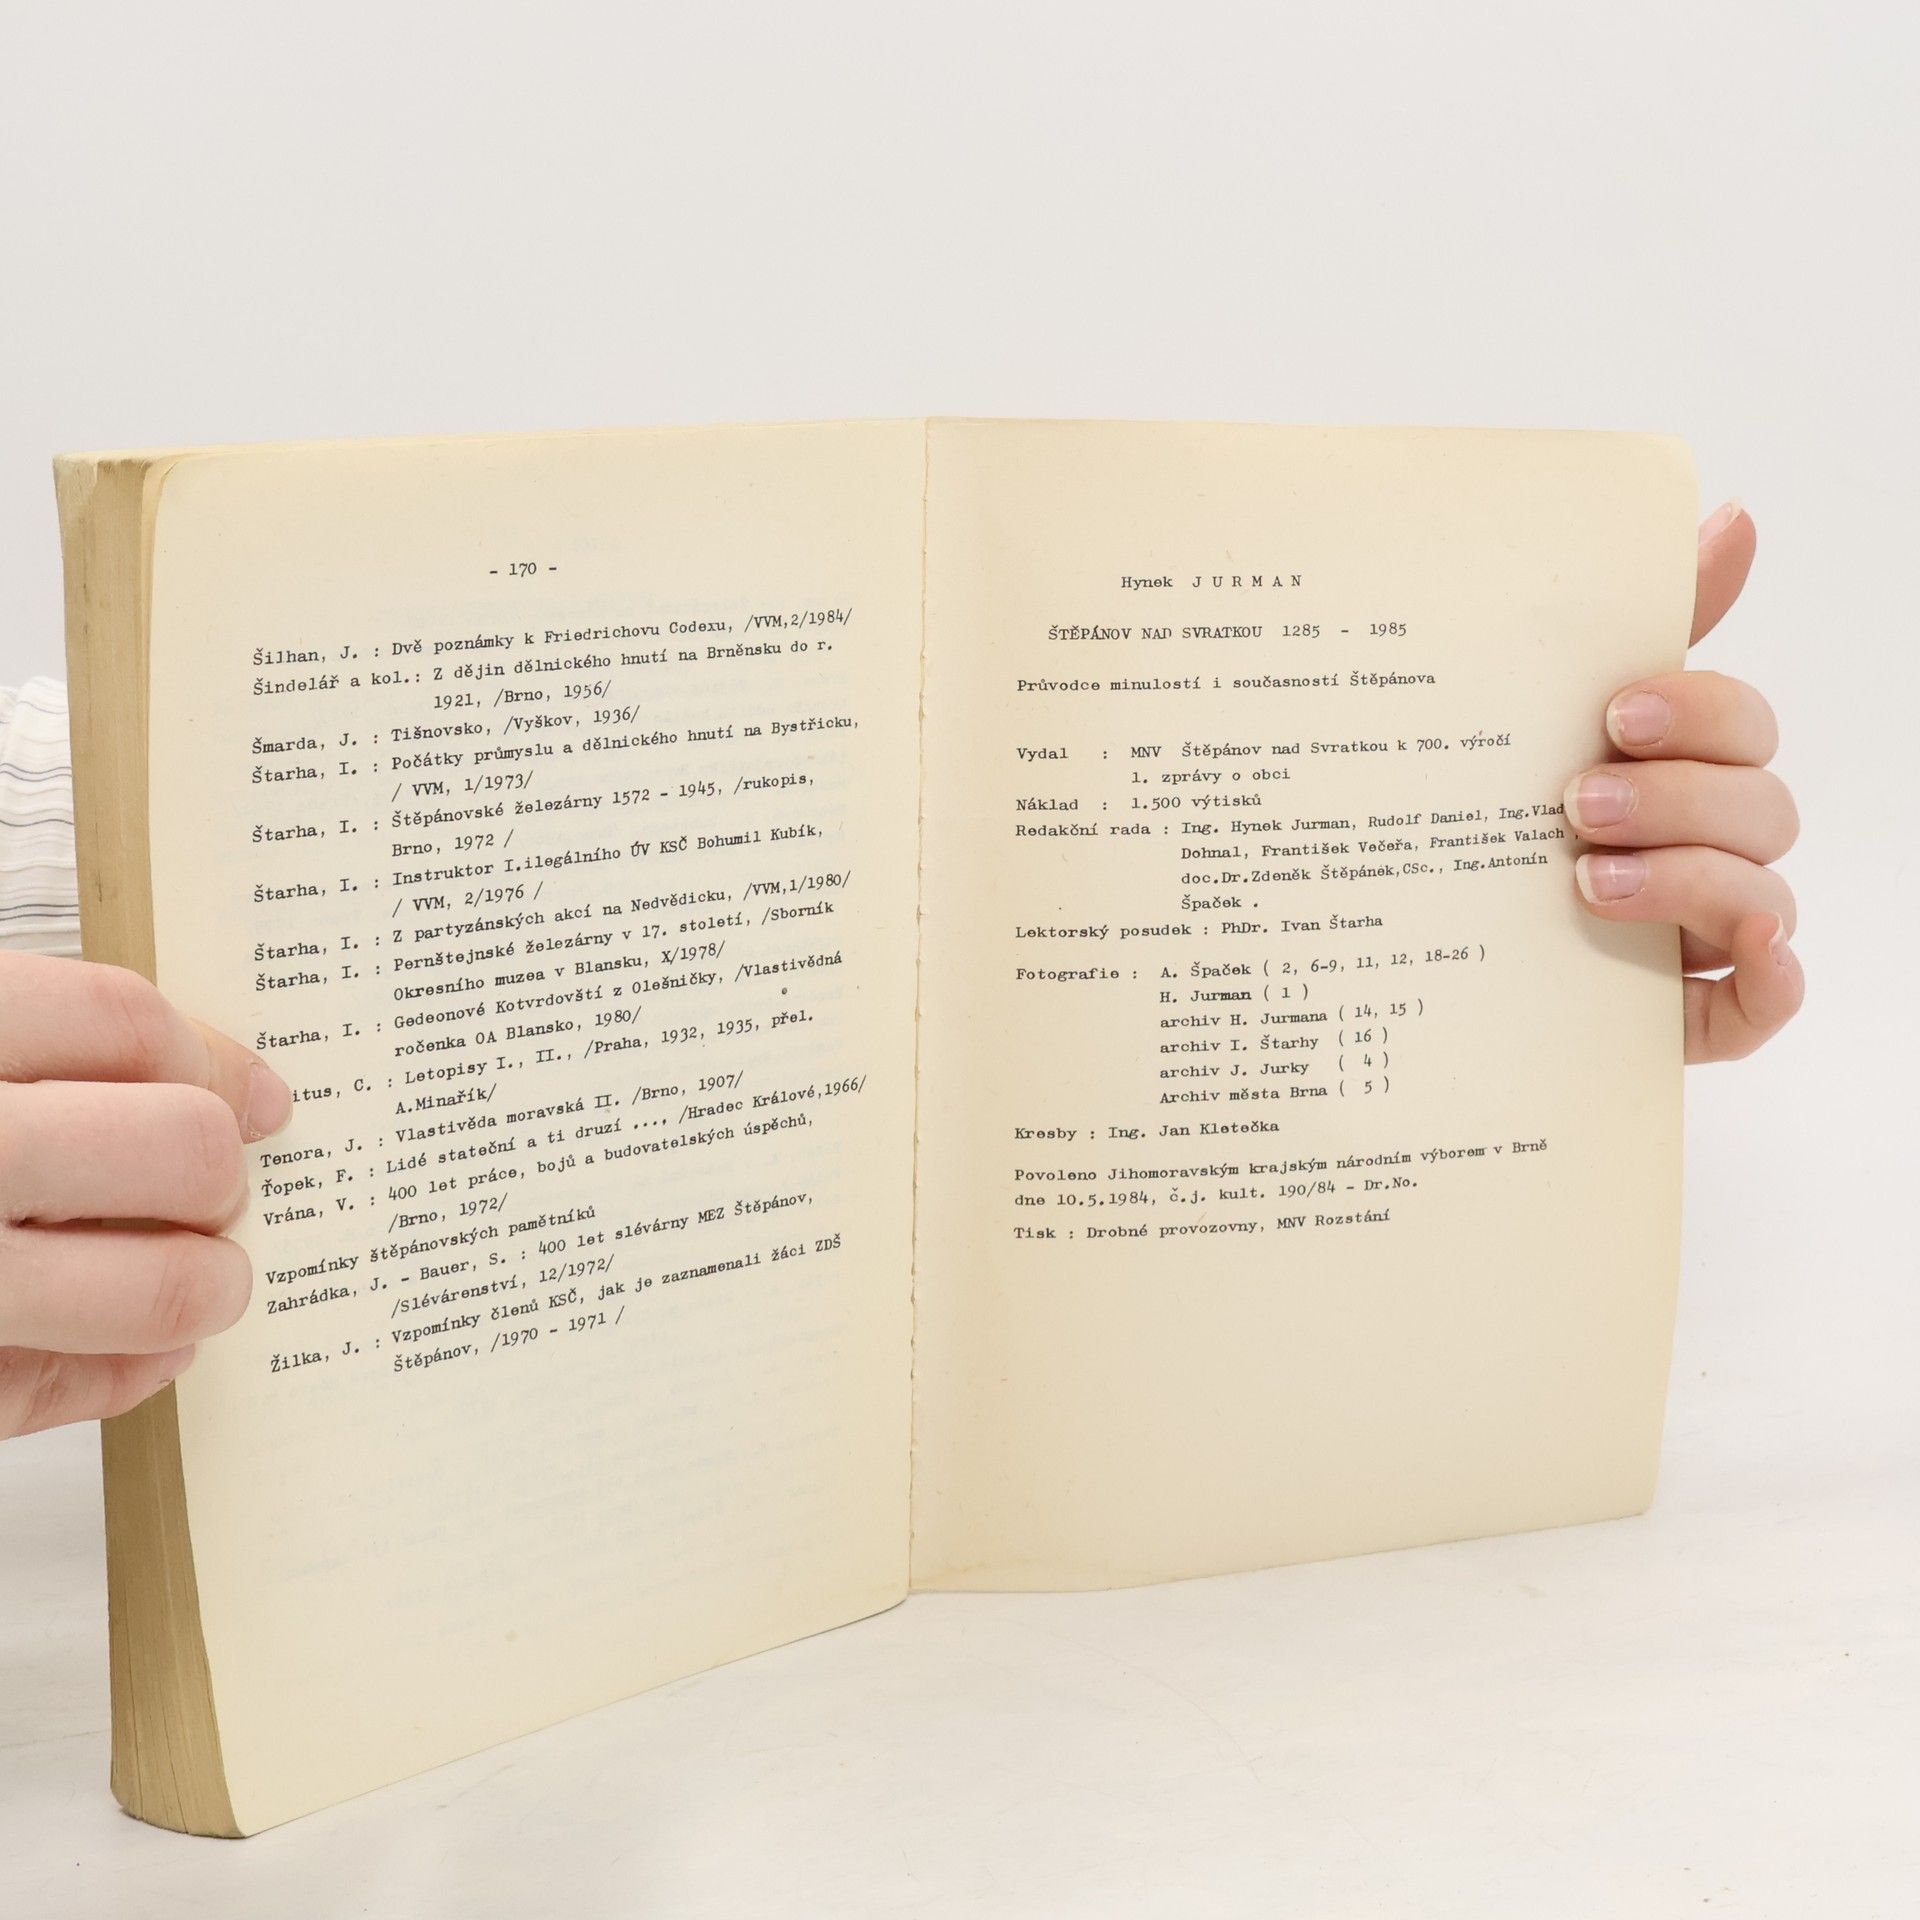 - 170 -
Šilhan, J. : Dvě poznámky k Friedrichovu Codexu, /VVM,2/1984/
Šindelář a kol.: Z dějin dělnického hnutí na Brněnsku do r.
1921, /Brno, 1956/
Šmarda, J. : Tišnovsko, /Vyškov, 1936/
Štarha, I. : Počátky průmyslu a dělnického hnutí na Bystřicku,
/ VVM, 1/1973/
Štarha, I. : Štěpánovské železárny 1572 - 1945, /rukopis,
Brno, 1972 /
Štarha, I. : Instruktor I.ilegálního ÚV KSČ Bohumil Kubík,
/ VVM, 2/1976 /
Štarha, I. : Z partyzánských akcí na Nedvědicku, /VVM,1/1980/
Štarha, I. : Pernštejnské železárny v 17. století, /Sborník
Okresního muzea v Blansku, X/1978/
Štarha, I. : Gedeonové Kotvrdovští z Olešničky, /Vlastivědná
ročenka OA Blansko, 1980/
itus, C. : Letopisy I., II., /Praha, 1932, 1935, přel.
A.Minařík/
Tenora, J. : Vlastivěda moravská II. /Brno, 1907/
Ťopek, F. : Lidé stateční a ti druzí ..., /Hradec Králové,1966/
Vrána, V. : 400 let práce, bojů a budovatelských úspěchů,
/Brno, 1972/
Vzpomínky štěpánovských pamětníků
Zahrádka, J. - Bauer, S. : 400 let slévárny MEZ Štěpánov,
/Slévárenství, 12/1972/
Žilka, J. : Vzpomínky členů KSČ, jak je zaznamenali žáci ZDŠ
Štěpánov, /1970 - 1971 /
Hynek J U R M A N
ŠTĚPÁNOV NAD SVRATKOU 1285 - 1985
Průvodce minulostí i současností Štěpánova
Vydal : MNV Štěpánov nad Svratkou k 700. výročí
1. zprávy o obci
Náklad : 1.500 výtisků
Redakční rada : Ing. Hynek Jurman, Rudolf Daniel, Ing.Vlad
Dohnal, František Večeřa, František Valach ,
doc.Dr.Zdeněk Štěpánek,CSc., Ing.Antonín
Špaček .
Lektorský posudek : PhDr. Ivan Štarha
Fotografie : A. Špaček ( 2, 6-9, 11, 12, 18-26 )
H. Jurman ( 1 )
archiv H. Jurmana ( 14, 15 )
archiv I. Štarhy ( 16 )
archiv J. Jurky ( 4 )
Archiv města Brna ( 5 )
Kresby : Ing. Jan Kletečka
Povoleno Jihomoravským krajským národním výborem v Brně
dne 10.5.1984, č.j. kult. 190/84 - Dr.No.
Tisk : Drobné provozovny, MNV Rozstání